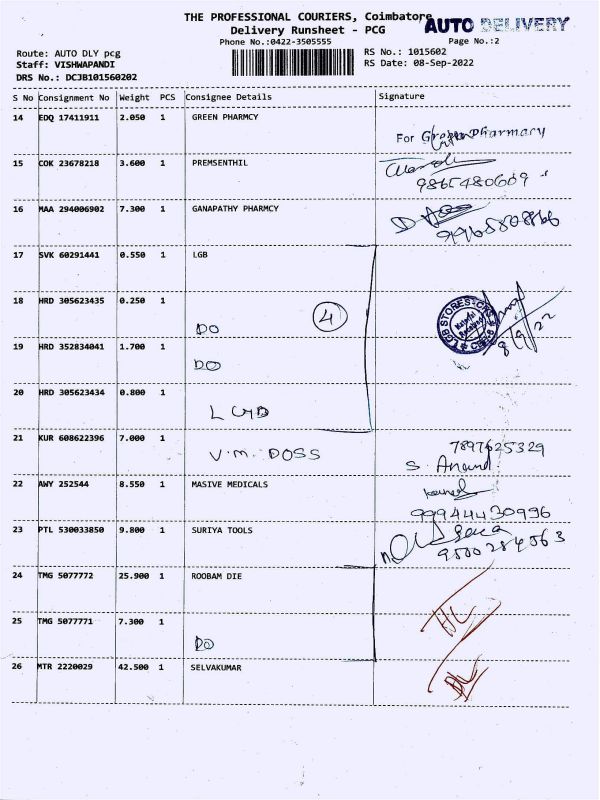 THE PROFESSIONAL COURIERS, Coimbatore
AUTO DELIVERY
Delivery Runsheet - PCG
Phone No.:0422-3505555
Page No.:2
Route: AUTO DLY pcg
RS No.: 1015602
Staff: VISHWAPANDI
RS Date: 08-Sep-2022
DRS No.: DCJB101560202
S No Consignment No Weight PCS Consignee Details Signature
14 EDQ 17411911 2.050 1 GREEN PHARMCY
For Green Pharmacy
15 COK 23678218 3.600 1 PREMSENTHIL
9865480609
16 MAA 294006902 7.300 1 GANAPATHY PHARMCY
9965808866
17 SVK 60291441 0.550 1 LGB
18 HRD 305623435 0.250 1 DO
4
LGB STORES
8/9/22
19 HRD 352834041 1.700 1 DO
20 HRD 305623434 0.800 1
21 KUR 608622396 7.000 1 V.M. DOSS
7897625329
S. Anand
22 AWY 252544 8.550 1 MASIVE MEDICALS
99944430996
23 PTL 530033850 9.800 1 SURIYA TOOLS
9500284563
24 TMG 5077772 25.900 1 ROOBAM DIE
25 TMG 5077771 7.300 1 DO
26 MTR 2220029 42.500 1 SELVAKUMAR